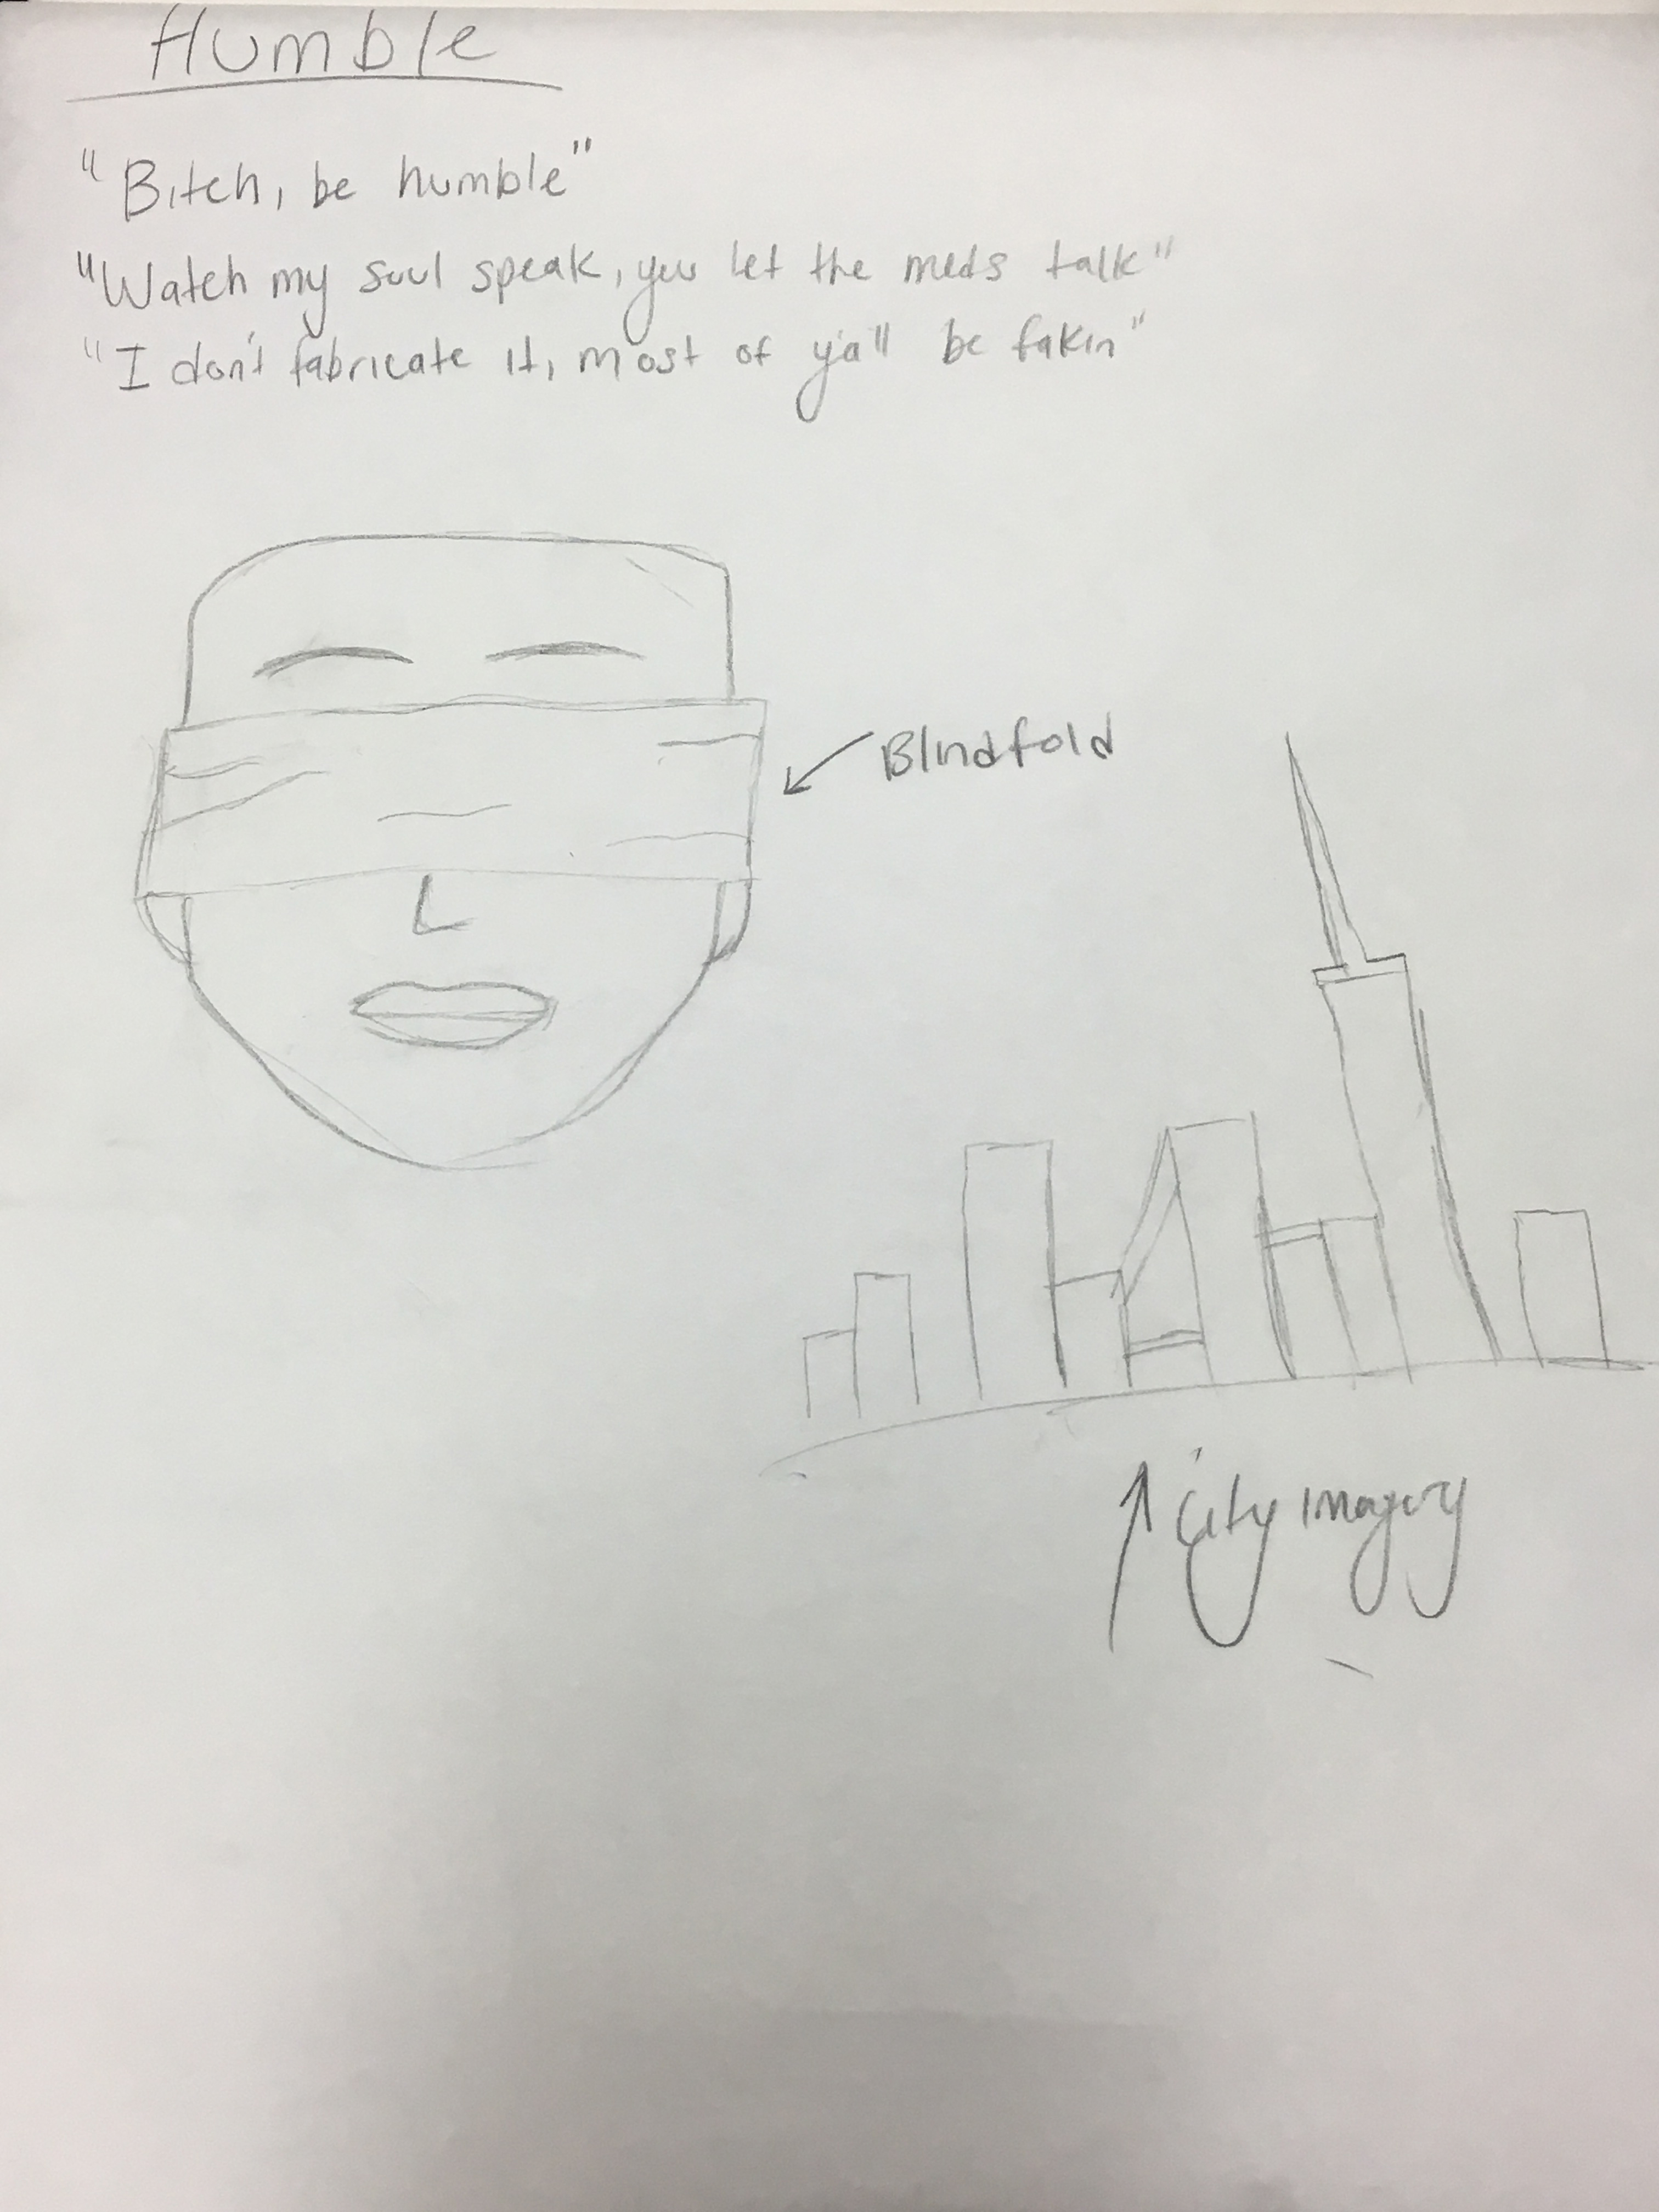 Humble
"Bitch, be humble"
"Watch my soul speak, you let the meds talk"
"I don't fabricate it, most of ya'll be fakin"
Blindfold
City imagery